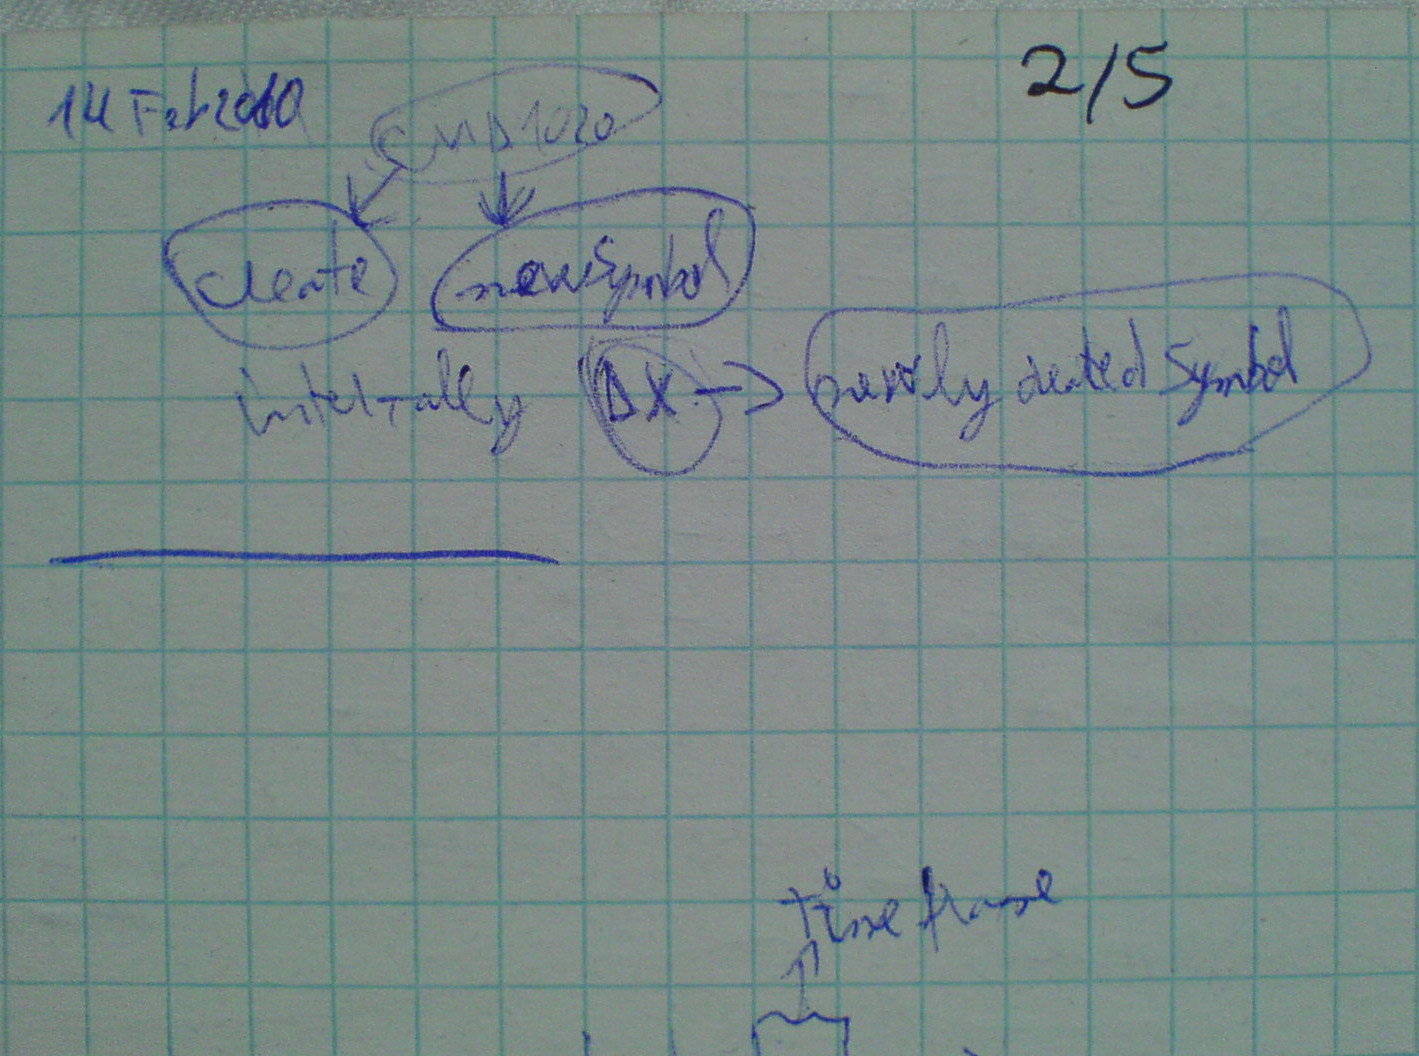 14 Feb 2010
2/5
CMD1020
create newSymbol
internally ΔX → newly created Symbol
time frame